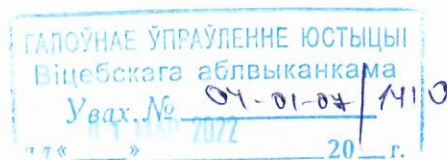 ГАЛОЎНАЕ ЎПРАЎЛЕННЕ ЮСТЫЦЫІ
Віцебскага аблвыканкама
Увах. № 04-01-07/1410
МАР 2022
« » 20 г.